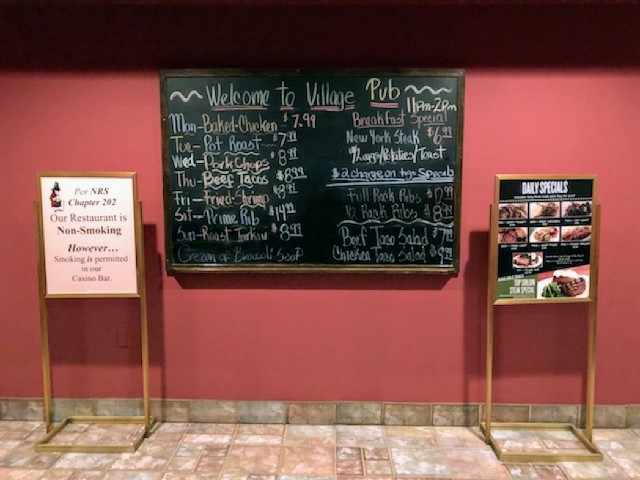 Per NRS
Chapter 202
Our Restaurant is
Non-Smoking
However...
Smoking is permitted
in our
Casino Bar.
Welcome to Village Pub
Mon-Baked-Chicken-$7.99
Tue-Pot Roast-$7.99
Wed-Pork Chops $8.99
Thu-Beef Tacos $8.99
Fri-Fried-Shrimp $8.99
Sat-Prime Rib $14.99
Sun-Roast Turkey $8.99
Cream of Broccoli Soup
11pm-2pm
Breakfast Special
New York Steak $6.99
w/Eggs/Potatoes/Toast
$2 charge on togo Specials
Full Rack Ribs
1/2 Rack Ribs $8.99
Beef Taco Salad $7.99
Chicken Taco Salad $9.99
DAILY SPECIALS
TOP SIRLOIN
STEAK SPECIAL